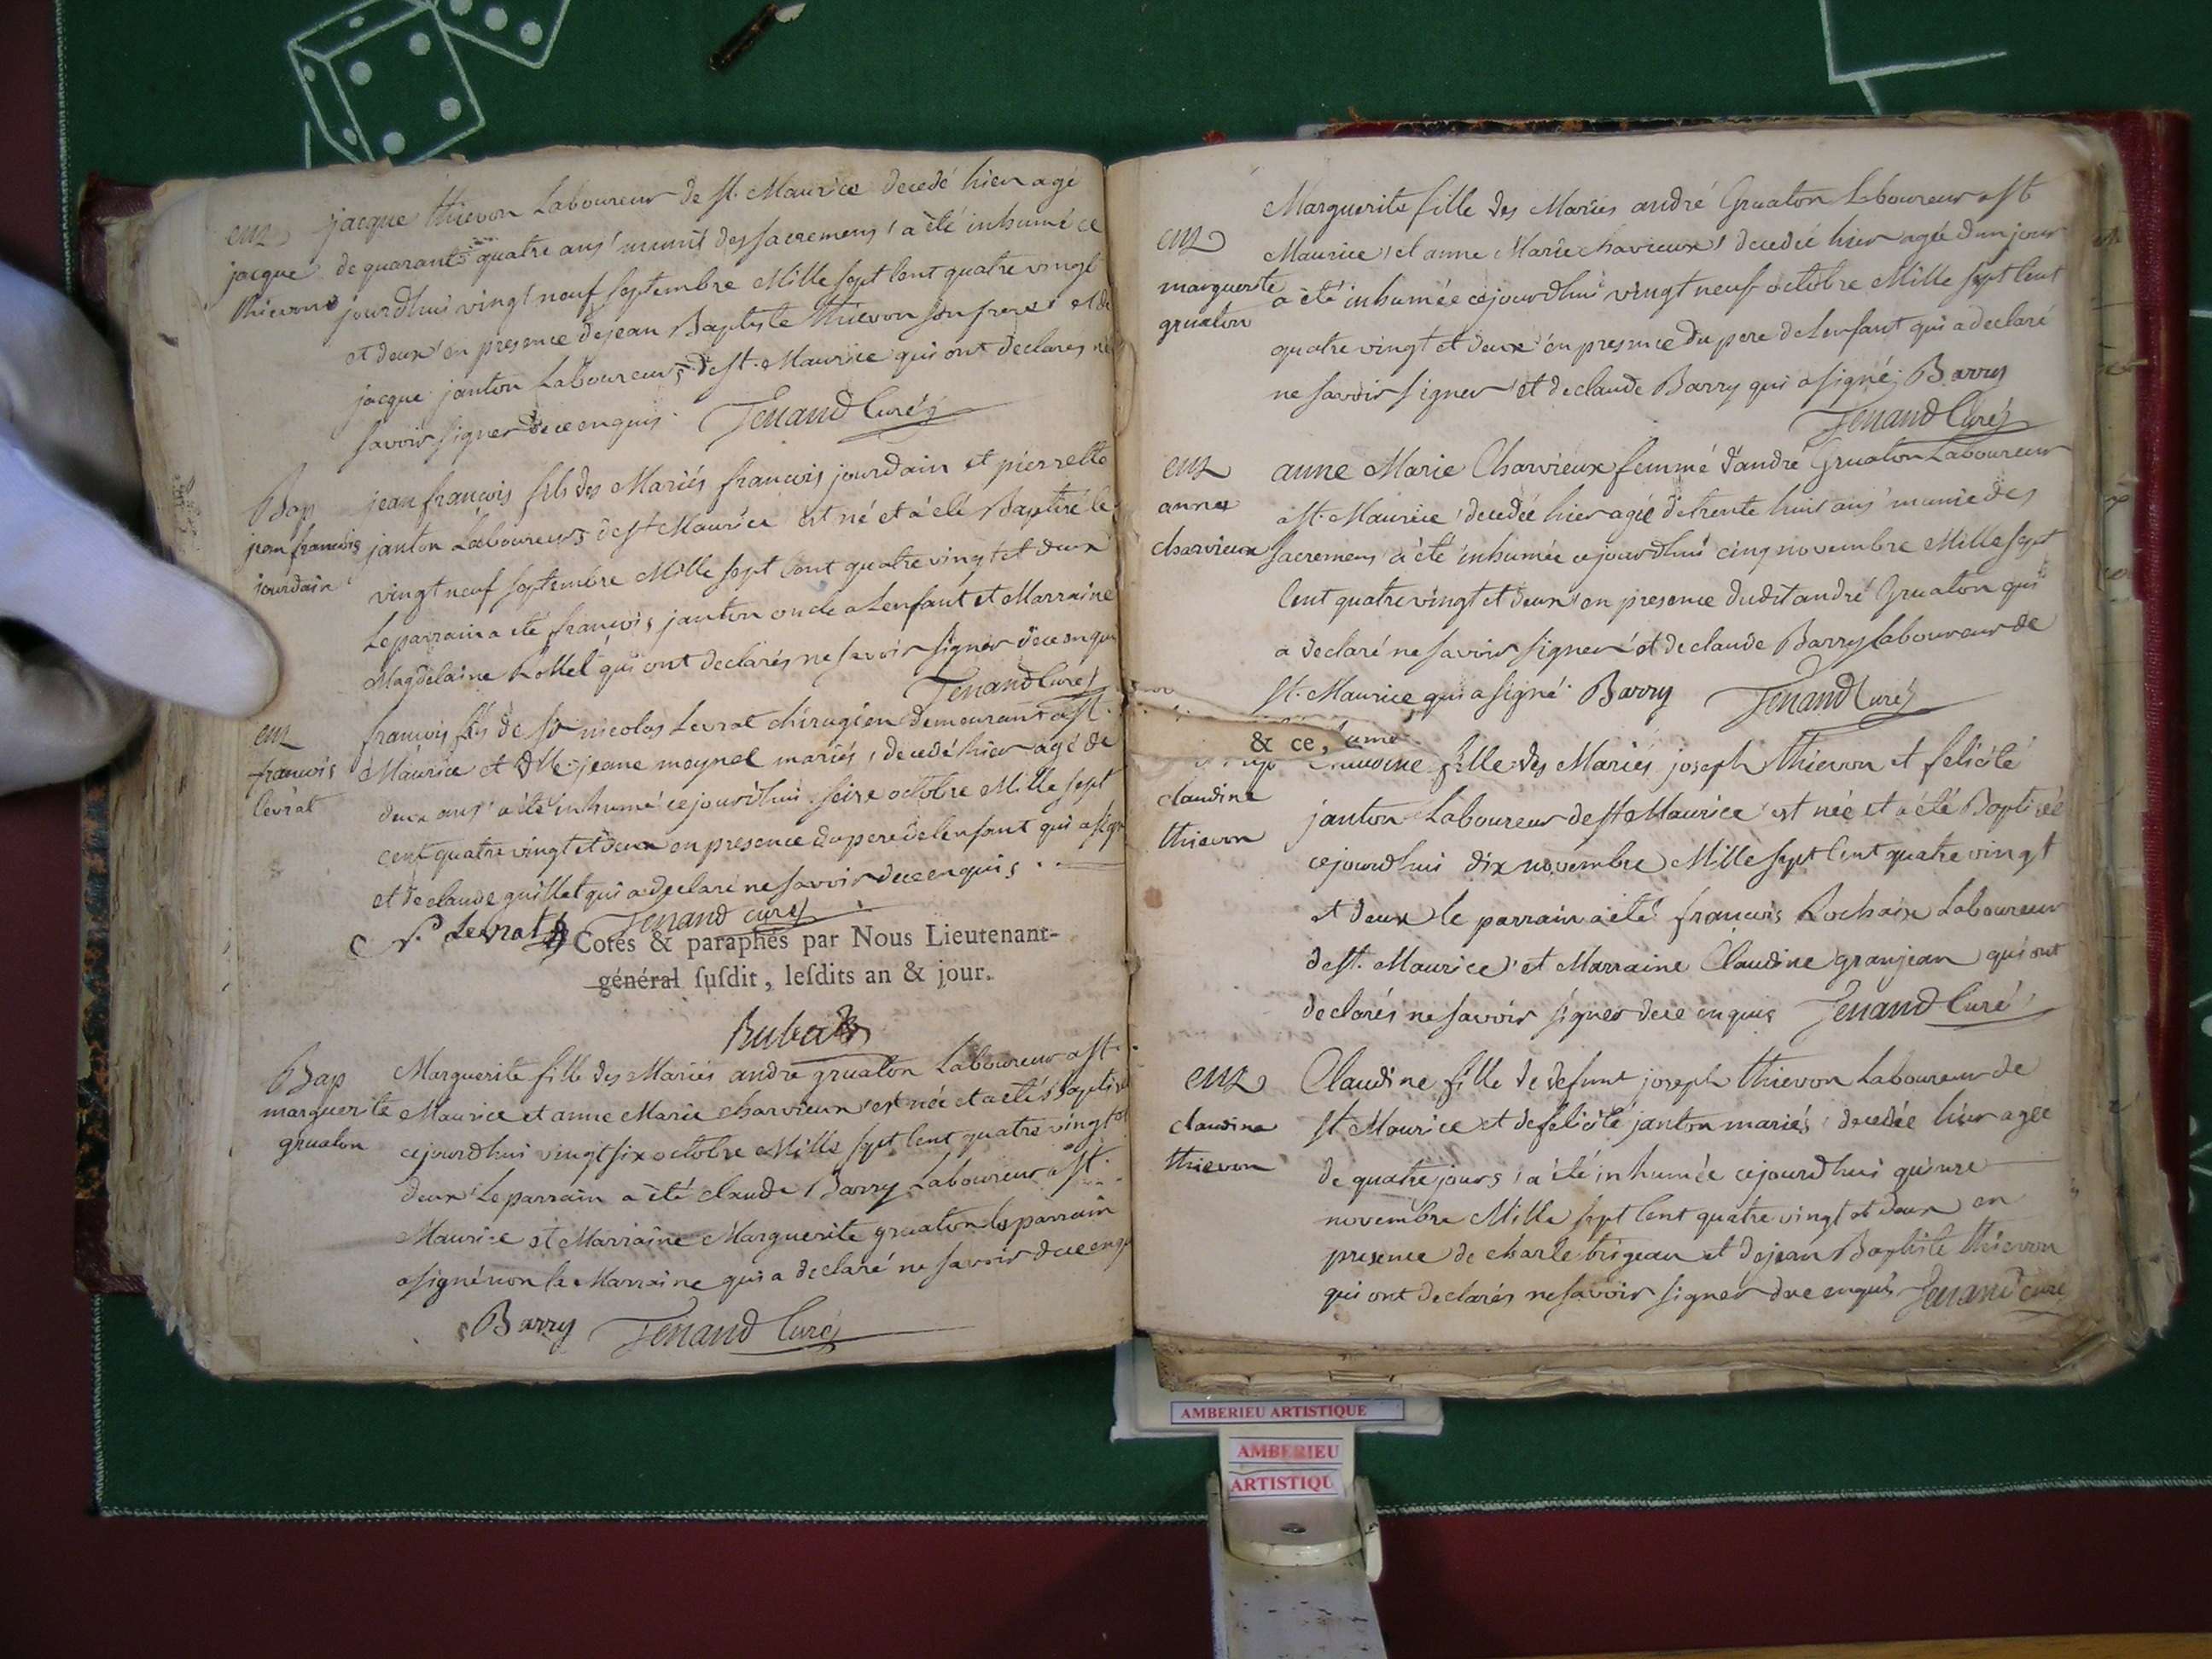 enz jacque thievon Laboureur de st. Maurice decedé hier agé
jacque de quarante quatre ans munit des sacremens a èté inhumé ce
thievon jourdhui vingt neuf septembre Mille sept Cent quatre vingt
et deux en presence de jean Baptiste thievon son frere et de
jacque janton Laboureurs de st. Maurice qui ont declarés ne
savoir signer de ce enquis. Tenand Curé
Bap jean francois fils des Mariés francois jourdain et pierrette
jean francois janton Laboureurs de st Maurice est né et a èté Baptisé le
jourdain vingt neuf septembre Mille sept Cent quatre vingt et deux
Le parrain a èté francois janton oncle a Lenfant et Marraine
Magdelaine qui ont declarés ne savoir signer de ce enquis
Tenand Curé
enz francois fils de sr nicolas Levrat chirugien demeurant a st.
francois Maurice et dlle jeane moynel mariés, decedé hier agé de
levrat deux ans a èté inhumé cejourdhui seize octobre Mille sept
cent quatre vingt et deux en presence du pere de lenfant qui a signé
et de claude guillet qui a declaré ne savoir de ce enquis.
Levrat Tenand curé
Cotés & paraphés par Nous Lieutenant-
général suſdit, leſdits an & jour.
Bap Marguerite fille des Mariés andré gruaton Laboureur a st.
marguerite Maurice et anne Marie charvieux est née et a èté Baptisé
gruaton cejourdhui vingt six octobre Mille sept Cent quatre vingt et
deux Le parrain a èté claude Barry Laboureur a st.
Maurice et Marraine Marguerite gruaton le parrain
a signé non la Marraine qui a declaré ne savoir de ce enquis
Barry Tenand Curé
Marguerite fille des Mariés andré Gruaton Laboureur a st
enz Maurice et anne Marie chavieux decedée hier agée dun jour
marguerite a èté inhumée cejourdhui vingt neuf octobre Mille sept Cent
gruaton quatre vingt et deux en presence du pere de Lenfant qui a declaré
ne savoir signer et de claude Barry qui a signé. Barry
Tenand Curé
enz anne Marie Charvieux femme dandré Gruaton Laboureur
anne a st. Maurice decedée hier agée de trente huit ans munie des
charvieux sacremens a èté inhumée cejourdhui cinq novembre Mille sept
Cent quatre vingt et deux en presence dudit andré Gruaton qui
a declaré ne savoir signer et de claude Barry laboureur de
st. Maurice qui a signé. Barry Tenand Curé
& ce,
fille des Mariés joseph thievon et felicité
claudine janton Laboureur de st Maurice est née et a èté Baptisée
thievon cejourdhui dix novembre Mille sept Cent quatre vingt
et deux le parrain a èté francois Rochaix Laboureur
de st. Maurice et Marraine Claudine granjean qui ont
declarés ne savoir signer de ce enquis Tenand Curé
enz Claudine fille de defunt joseph thievon Laboureur de
claudine st Maurice et de felicité janton mariés decedée hier agée
thievon de quatre jours a èté inhumée cejourdhui quinze
novembre Mille sept Cent quatre vingt et deux en
presence de charle brigean et de jean Baptiste thievon
qui ont declarés ne savoir signer de ce enquis Tenand curé
AMBERIEU ARTISTIQUE
AMBERIEU
ARTISTIQU